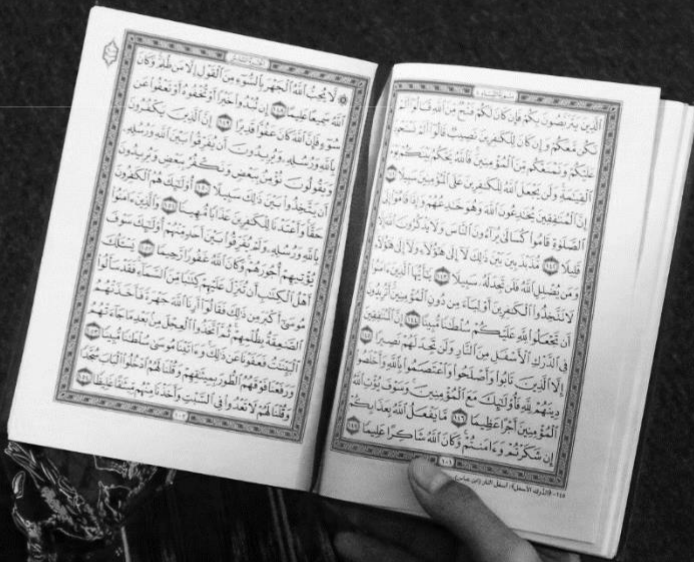 سورة النساء
ٱلَّذِينَ يَتَرَبَّصُونَ بِكُمْ فَإِن كَانَ لَكُمْ فَتْحٌ مِّنَ ٱللَّهِ قَالُوٓا۟ أَلَمْ
نَكُن مَّعَكُمْ وَإِن كَانَ لِلْكَٰفِرِينَ نَصِيبٌ قَالُوٓا۟ أَلَمْ نَسْتَحْوِذْ
عَلَيْكُمْ وَنَمْنَعْكُم مِّنَ ٱلْمُؤْمِنِينَ فَٱللَّهُ يَحْكُمُ بَيْنَكُمْ يَوْمَ
ٱلْقِيَٰمَةِ وَلَن يَجْعَلَ ٱللَّهُ لِلْكَٰفِرِينَ عَلَى ٱلْمُؤْمِنِينَ سَبِيلًا ١٤١
إِنَّ ٱلْمُنَٰفِقِينَ يُخَٰدِعُونَ ٱللَّهَ وَهُوَ خَٰدِعُهُمْ وَإِذَا قَامُوٓا۟ إِلَى
ٱلصَّلَوٰةِ قَامُوا۟ كُسَالَىٰ يُرَآءُونَ ٱلنَّاسَ وَلَا يَذْكُرُونَ ٱللَّهَ إِلَّا
قَلِيلًا ١٤٢ مُّذَبْذَبِينَ بَيْنَ ذَٰلِكَ لَآ إِلَىٰ هَٰٓؤُلَآءِ وَلَآ إِلَىٰ هَٰٓؤُلَآءِ
وَمَن يُضْلِلِ ٱللَّهُ فَلَن تَجِدَ لَهُۥ سَبِيلًا ١٤٣ يَٰٓأَيُّهَا ٱلَّذِينَ ءَامَنُوا۟
لَا تَتَّخِذُوا۟ ٱلْكَٰفِرِينَ أَوْلِيَآءَ مِن دُونِ ٱلْمُؤْمِنِينَ أَتُرِيدُونَ
أَن تَجْعَلُوا۟ لِلَّهِ عَلَيْكُمْ سُلْطَٰنًا مُّبِينًا ١٤٤ إِنَّ ٱلْمُنَٰفِقِينَ
فِى ٱلدَّرْكِ ٱلْأَسْفَلِ مِنَ ٱلنَّارِ وَلَن تَجِدَ لَهُمْ نَصِيرًا ١٤٥
إِلَّا ٱلَّذِينَ تَابُوا۟ وَأَصْلَحُوا۟ وَٱعْتَصَمُوا۟ بِٱللَّهِ وَأَخْلَصُوا۟
دِينَهُمْ لِلَّهِ فَأُو۟لَٰٓئِكَ مَعَ ٱلْمُؤْمِنِينَ وَسَوْفَ يُؤْتِ ٱللَّهُ
ٱلْمُؤْمِنِينَ أَجْرًا عَظِيمًا ١٤٦ مَّا يَفْعَلُ ٱللَّهُ بِعَذَابِكُمْ
إِن شَكَرْتُمْ وَءَامَنتُمْ وَكَانَ ٱللَّهُ شَاكِرًا عَلِيمًا ١٤٧
١٠١
١٤٥- (الدرك الأسفل): أسفل النار (ابن عباس)
لَّا يُحِبُّ ٱللَّهُ ٱلْجَهْرَ بِٱلسُّوٓءِ مِنَ ٱلْقَوْلِ إِلَّا مَن ظُلِمَ وَكَانَ
ٱللَّهُ سَمِيعًا عَلِيمًا ١٤٨ إِن تُبْدُوا۟ خَيْرًا أَوْ تُخْفُوهُ أَوْ تَعْفُوا۟ عَن
سُوٓءٍ فَإِنَّ ٱللَّهَ كَانَ عَفُوًّا قَدِيرًا ١٤٩ إِنَّ ٱلَّذِينَ يَكْفُرُونَ
بِٱللَّهِ وَرُسُلِهِۦ وَيُرِيدُونَ أَن يُفَرِّقُوا۟ بَيْنَ ٱللَّهِ وَرُسُلِهِۦ
وَيَقُولُونَ نُؤْمِنُ بِبَعْضٍ وَنَكْفُرُ بِبَعْضٍ وَيُرِيدُونَ
أَن يَتَّخِذُوا۟ بَيْنَ ذَٰلِكَ سَبِيلًا ١٥٠ أُو۟لَٰٓئِكَ هُمُ ٱلْكَٰفِرُونَ
حَقًّا وَأَعْتَدْنَا لِلْكَٰفِرِينَ عَذَابًا مُّهِينًا ١٥١ وَٱلَّذِينَ ءَامَنُوا۟
بِٱللَّهِ وَرُسُلِهِۦ وَلَمْ يُفَرِّقُوا۟ بَيْنَ أَحَدٍ مِّنْهُمْ أُو۟لَٰٓئِكَ سَوْفَ
يُؤْتِيهِمْ أُجُورَهُمْ وَكَانَ ٱللَّهُ غَفُورًا رَّحِيمًا ١٥٢ يَسْـَٔلُكَ
أَهْلُ ٱلْكِتَٰبِ أَن تُنَزِّلَ عَلَيْهِمْ كِتَٰبًا مِّنَ ٱلسَّمَآءِ فَقَدْ سَأَلُوا۟
مُوسَىٰٓ أَكْبَرَ مِن ذَٰلِكَ فَقَالُوٓا۟ أَرِنَا ٱللَّهَ جَهْرَةً فَأَخَذَتْهُمُ
ٱلصَّٰعِقَةُ بِظُلْمِهِمْ ثُمَّ ٱتَّخَذُوا۟ ٱلْعِجْلَ مِنۢ بَعْدِ مَا جَآءَتْهُمُ
ٱلْبَيِّنَٰتُ فَعَفَوْنَا عَن ذَٰلِكَ وَءَاتَيْنَا مُوسَىٰ سُلْطَٰنًا مُّبِينًا ١٥٣
وَرَفَعْنَا فَوْقَهُمُ ٱلطُّورَ بِمِيثَٰقِهِمْ وَقُلْنَا لَهُمُ ٱدْخُلُوا۟ ٱلْبَابَ سُجَّدًا
وَقُلْنَا لَهُمْ لَا تَعْدُوا۟ فِى ٱلسَّبْتِ وَأَخَذْنَا مِنْهُم مِّيثَٰقًا غَلِيظًا ١٥٤
١٠٢